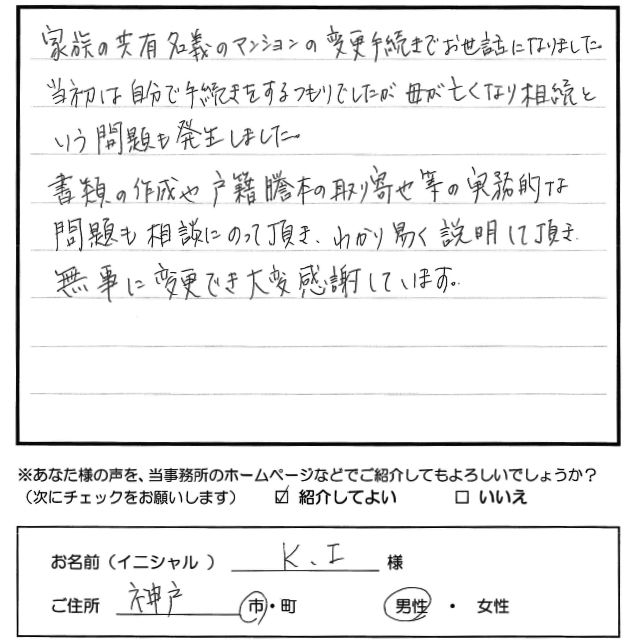 家族の共有名義のマンションの変更手続きでお世話になりました。
当初は自分で手続きをするつもりでしたが母が亡くなり相続と
いう問題も発生しました。
書類の作成や戸籍謄本の取り寄せ等の実務的な
問題も相談にのって頂き、わかり易く説明して頂き
無事に変更でき大変感謝しています。
※あなた様の声を、当事務所のホームページなどでご紹介してもよろしいでしょうか？
（次にチェックをお願いします） ☑ 紹介してよい □ いいえ
お名前（イニシャル ） K、I 様
ご住所 神戸 市・町 男性 ・ 女性